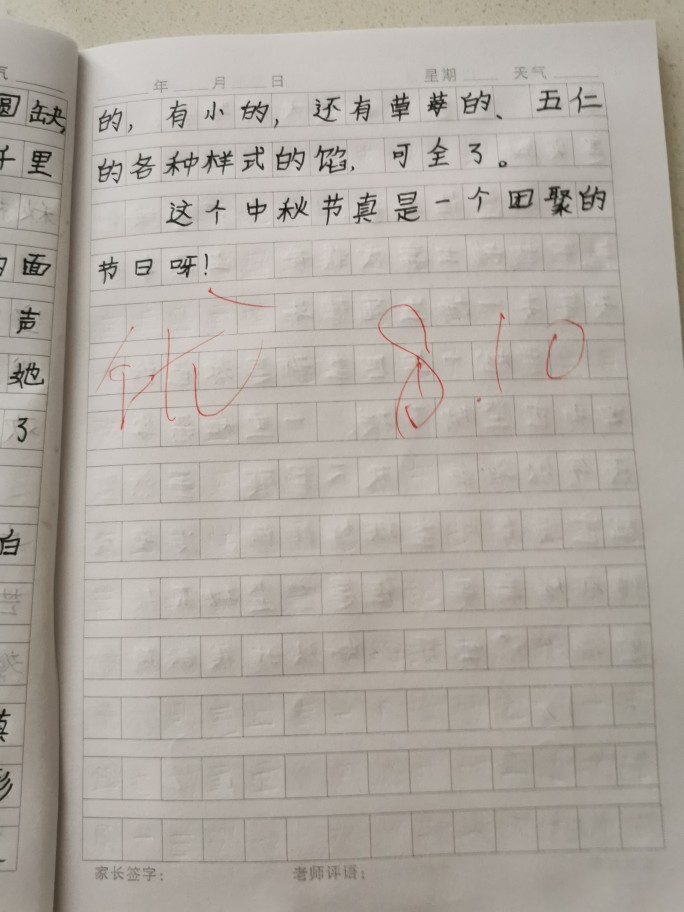 气
圆缺,
千里
面
声
她
了
白
真
年 月 日 星期 天气
的，有小的，还有草莓的、五仁
的各种样式的馅，可全了。
这个中秋节真是一个团聚的
节日呀！
优 8.10
家长签字： 老师评语：